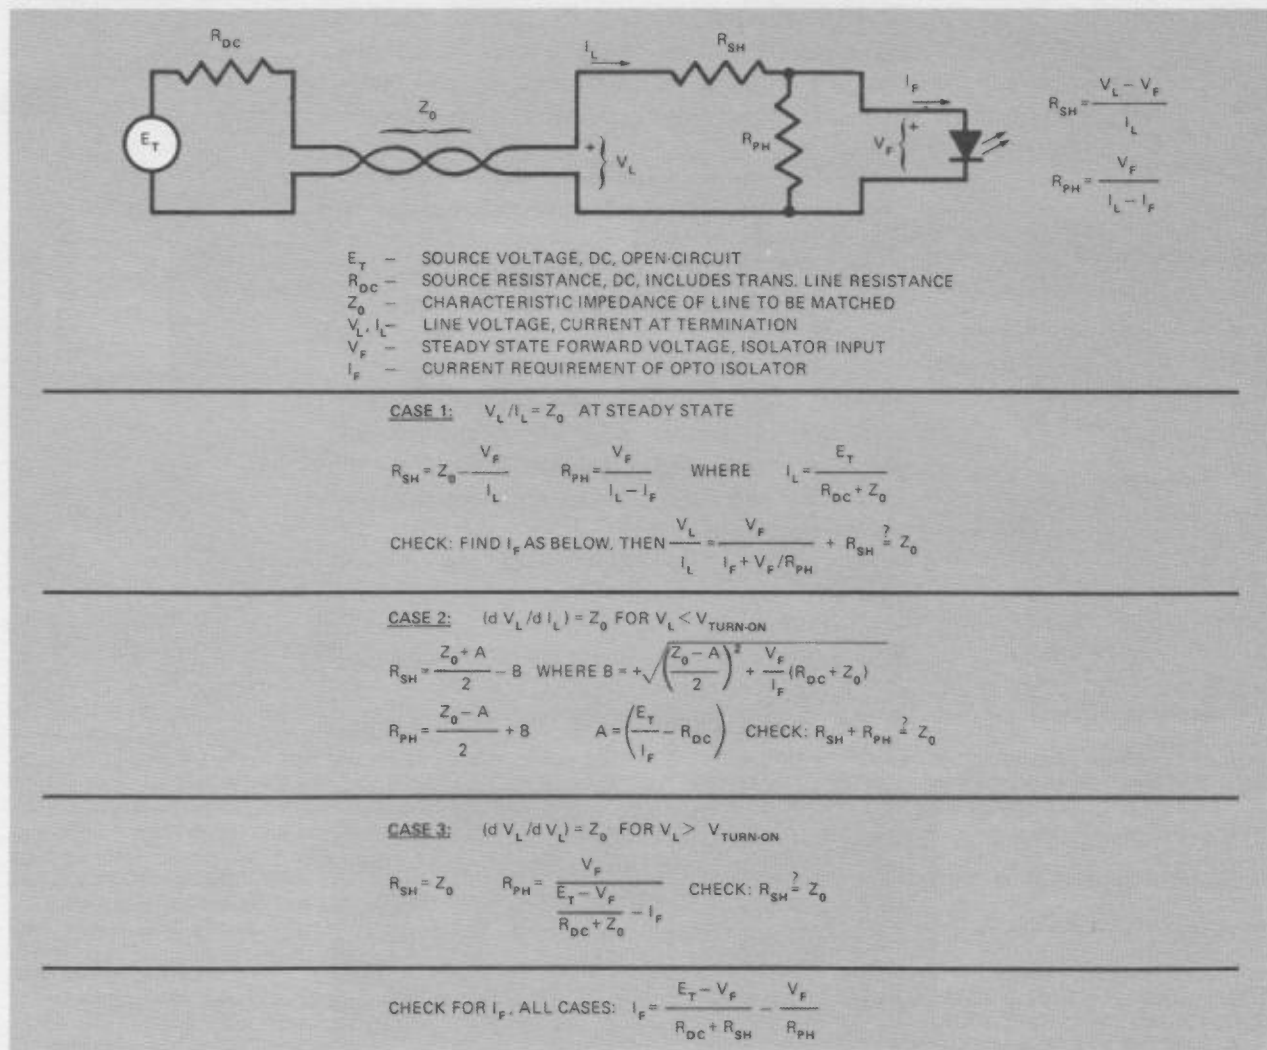 R_DC
E_T
Z_0
I_L
+ } V_L
R_SH
R_PH
I_F
V_F { +
R_SH = (V_L − V_F) / I_L
R_PH = V_F / (I_L − I_F)
E_T – SOURCE VOLTAGE, DC, OPEN-CIRCUIT
R_DC – SOURCE RESISTANCE, DC, INCLUDES TRANS. LINE RESISTANCE
Z_0 – CHARACTERISTIC IMPEDANCE OF LINE TO BE MATCHED
V_L, I_L – LINE VOLTAGE, CURRENT AT TERMINATION
V_F – STEADY STATE FORWARD VOLTAGE, ISOLATOR INPUT
I_F – CURRENT REQUIREMENT OF OPTO ISOLATOR
CASE 1: V_L/I_L = Z_0 AT STEADY STATE
R_SH = Z_0 − V_F / I_L R_PH = V_F / (I_L − I_F) WHERE I_L = E_T / (R_DC + Z_0)
CHECK: FIND I_F AS BELOW, THEN V_L / I_L = V_F / (I_F + V_F/R_PH) + R_SH ?= Z_0
CASE 2: (d V_L/d I_L) = Z_0 FOR V_L < V_TURN-ON
R_SH = (Z_0 + A) / 2 − B WHERE B = +√(((Z_0 − A) / 2)^2 + V_F / I_F (R_DC + Z_0))
R_PH = (Z_0 − A) / 2 + B A = (E_T / I_F − R_DC) CHECK: R_SH + R_PH ?= Z_0
CASE 3: (d V_L/d V_L) = Z_0 FOR V_L > V_TURN-ON
R_SH = Z_0 R_PH = V_F / ((E_T − V_F) / (R_DC + Z_0) − I_F) CHECK: R_SH ?= Z_0
CHECK FOR I_F, ALL CASES: I_F = (E_T − V_F) / (R_DC + R_SH) − V_F / R_PH